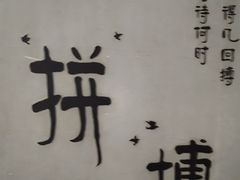 得几回搏
待何时
拼
搏